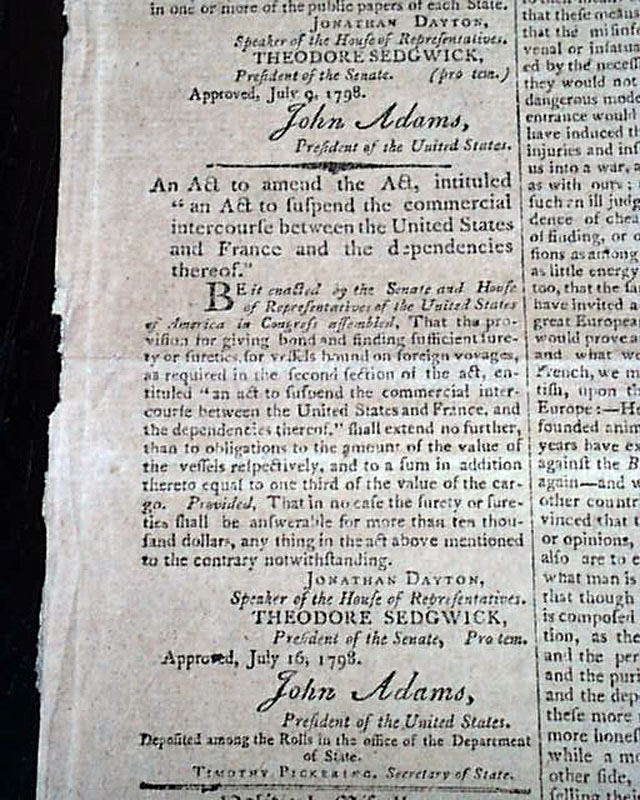 in one or more of the public papers of each State.
JONATHAN DAYTON,
Speaker of the Houſe of Repreſentatives.
THEODORE SEDGWICK,
Preſident of the Senate. (pro tem.)
Approved, July 9, 1798.
John Adams,
Preſident of the United States.
An Act to amend the Act, intituled
"an Act to ſuſpend the commercial
intercourſe between the United States
and France and the dependencies
thereof."
BE it enacted by the Senate and Houſe
of Repreſentatives of the United States
of America in Congreſs aſſembled, That the pro-
viſion for giving bond and finding ſufficient ſure-
ty or ſureties, for veſſels bound on foreign voyages,
as required in the ſecond ſection of the act, en-
tituled "an act to ſuſpend the commercial inter-
courſe between the United States and France, and
the dependencies thereof." ſhall extend no further,
than to obligations to the amount of the value of
the veſſels reſpectively, and to a ſum in addition
thereto equal to one third of the value of the car-
go. Provided, That in no caſe the ſurety or ſure-
ties ſhall be anſwerable for more than ten thou-
ſand dollars, any thing in the act above mentioned
to the contrary notwithſtanding.
JONATHAN DAYTON,
Speaker of the Houſe of Repreſentatives.
THEODORE SEDGWICK,
Preſident of the Senate, Pro tem.
Approved, July 16, 1798.
John Adams,
Preſident of the United States.
Depoſited among the Rolls in the office of the Department
of State.
TIMOTHY PICKERING, Secretary of State.
that theſe mean
that the miſinf
venal or infatua
ed by the neceſſ
they would not
dangerous mode
entrance would
have induced t
injuries and inſ
us into a war, a
as with ours ;
ſuch an ill judg
dence of chea
of finding, or o
ſions as among
as little energy
too, that the ſa
have invited a
great Europea
would prove a
and what we
French, we m
tiſh, upon th
Europe :—H
founded anim
years have ex
againſt the B
again—and w
other countr
vinced that t
or opinions,
alſo are to e
what man is
that though
is compoſed
tion, as the
and the per
and the puri
and the dep
theſe more
more honeſ
while a m
other ſide,
ſelling their